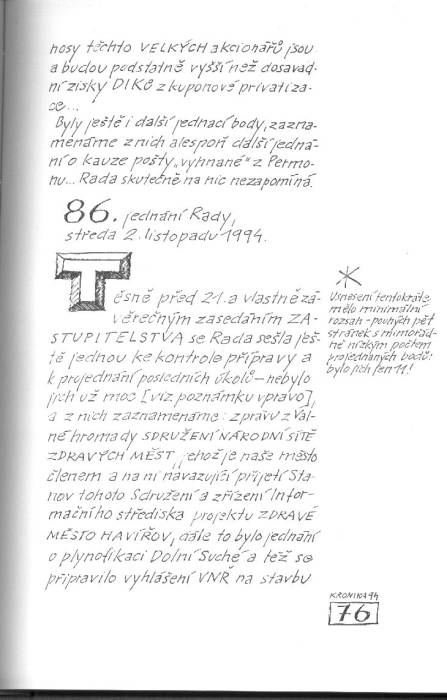 nosy těchto VELKÝCH akcionářů jsou
a budou podstatně vyšší než dosavad-
ní zisky DIKů z kuponové privatiza-
ce...
Byly ještě i další jednací body, zazna-
menáme z nich alespoň další jedná-
ní o kauze pošty „vyhnané“ z Permo-
nu... Rada skutečně na nic nezapomíná.
86. jednání Rady,
středa 2. listopadu 1994.
Těsně před 21. a vlastně zá-
věrečným zasedáním ZA-
STUPITELSTVA se Rada sešla ješ-
tě jednou ke kontrole přípravy a
k projednání posledních úkolů – nebylo
jich už moc [viz poznámku vpravo],
a z nich zaznamenáme: zprávu z Val-
né hromady SDRUŽENÍ NÁRODNÍ SÍTĚ
ZDRAVÝCH MĚST, jehož je naše město
členem a na ní navazující přijetí Sta-
nov tohoto Sdružení a zřízení Infor-
mačního střediska projektu ZDRAVÉ
MĚSTO HAVÍŘOV, dále to bylo jednání
o plynofikaci Dolní Suché a též se
připravilo vyhlášení VNŘ na stavbu
*
Usnesení tentokráte
mělo minimální
rozsah – pouhých pět
stránek s mimořád-
ně nízkým počtem
projednaných bodů:
bylo jich jen 11!
KRONIKA 94
76